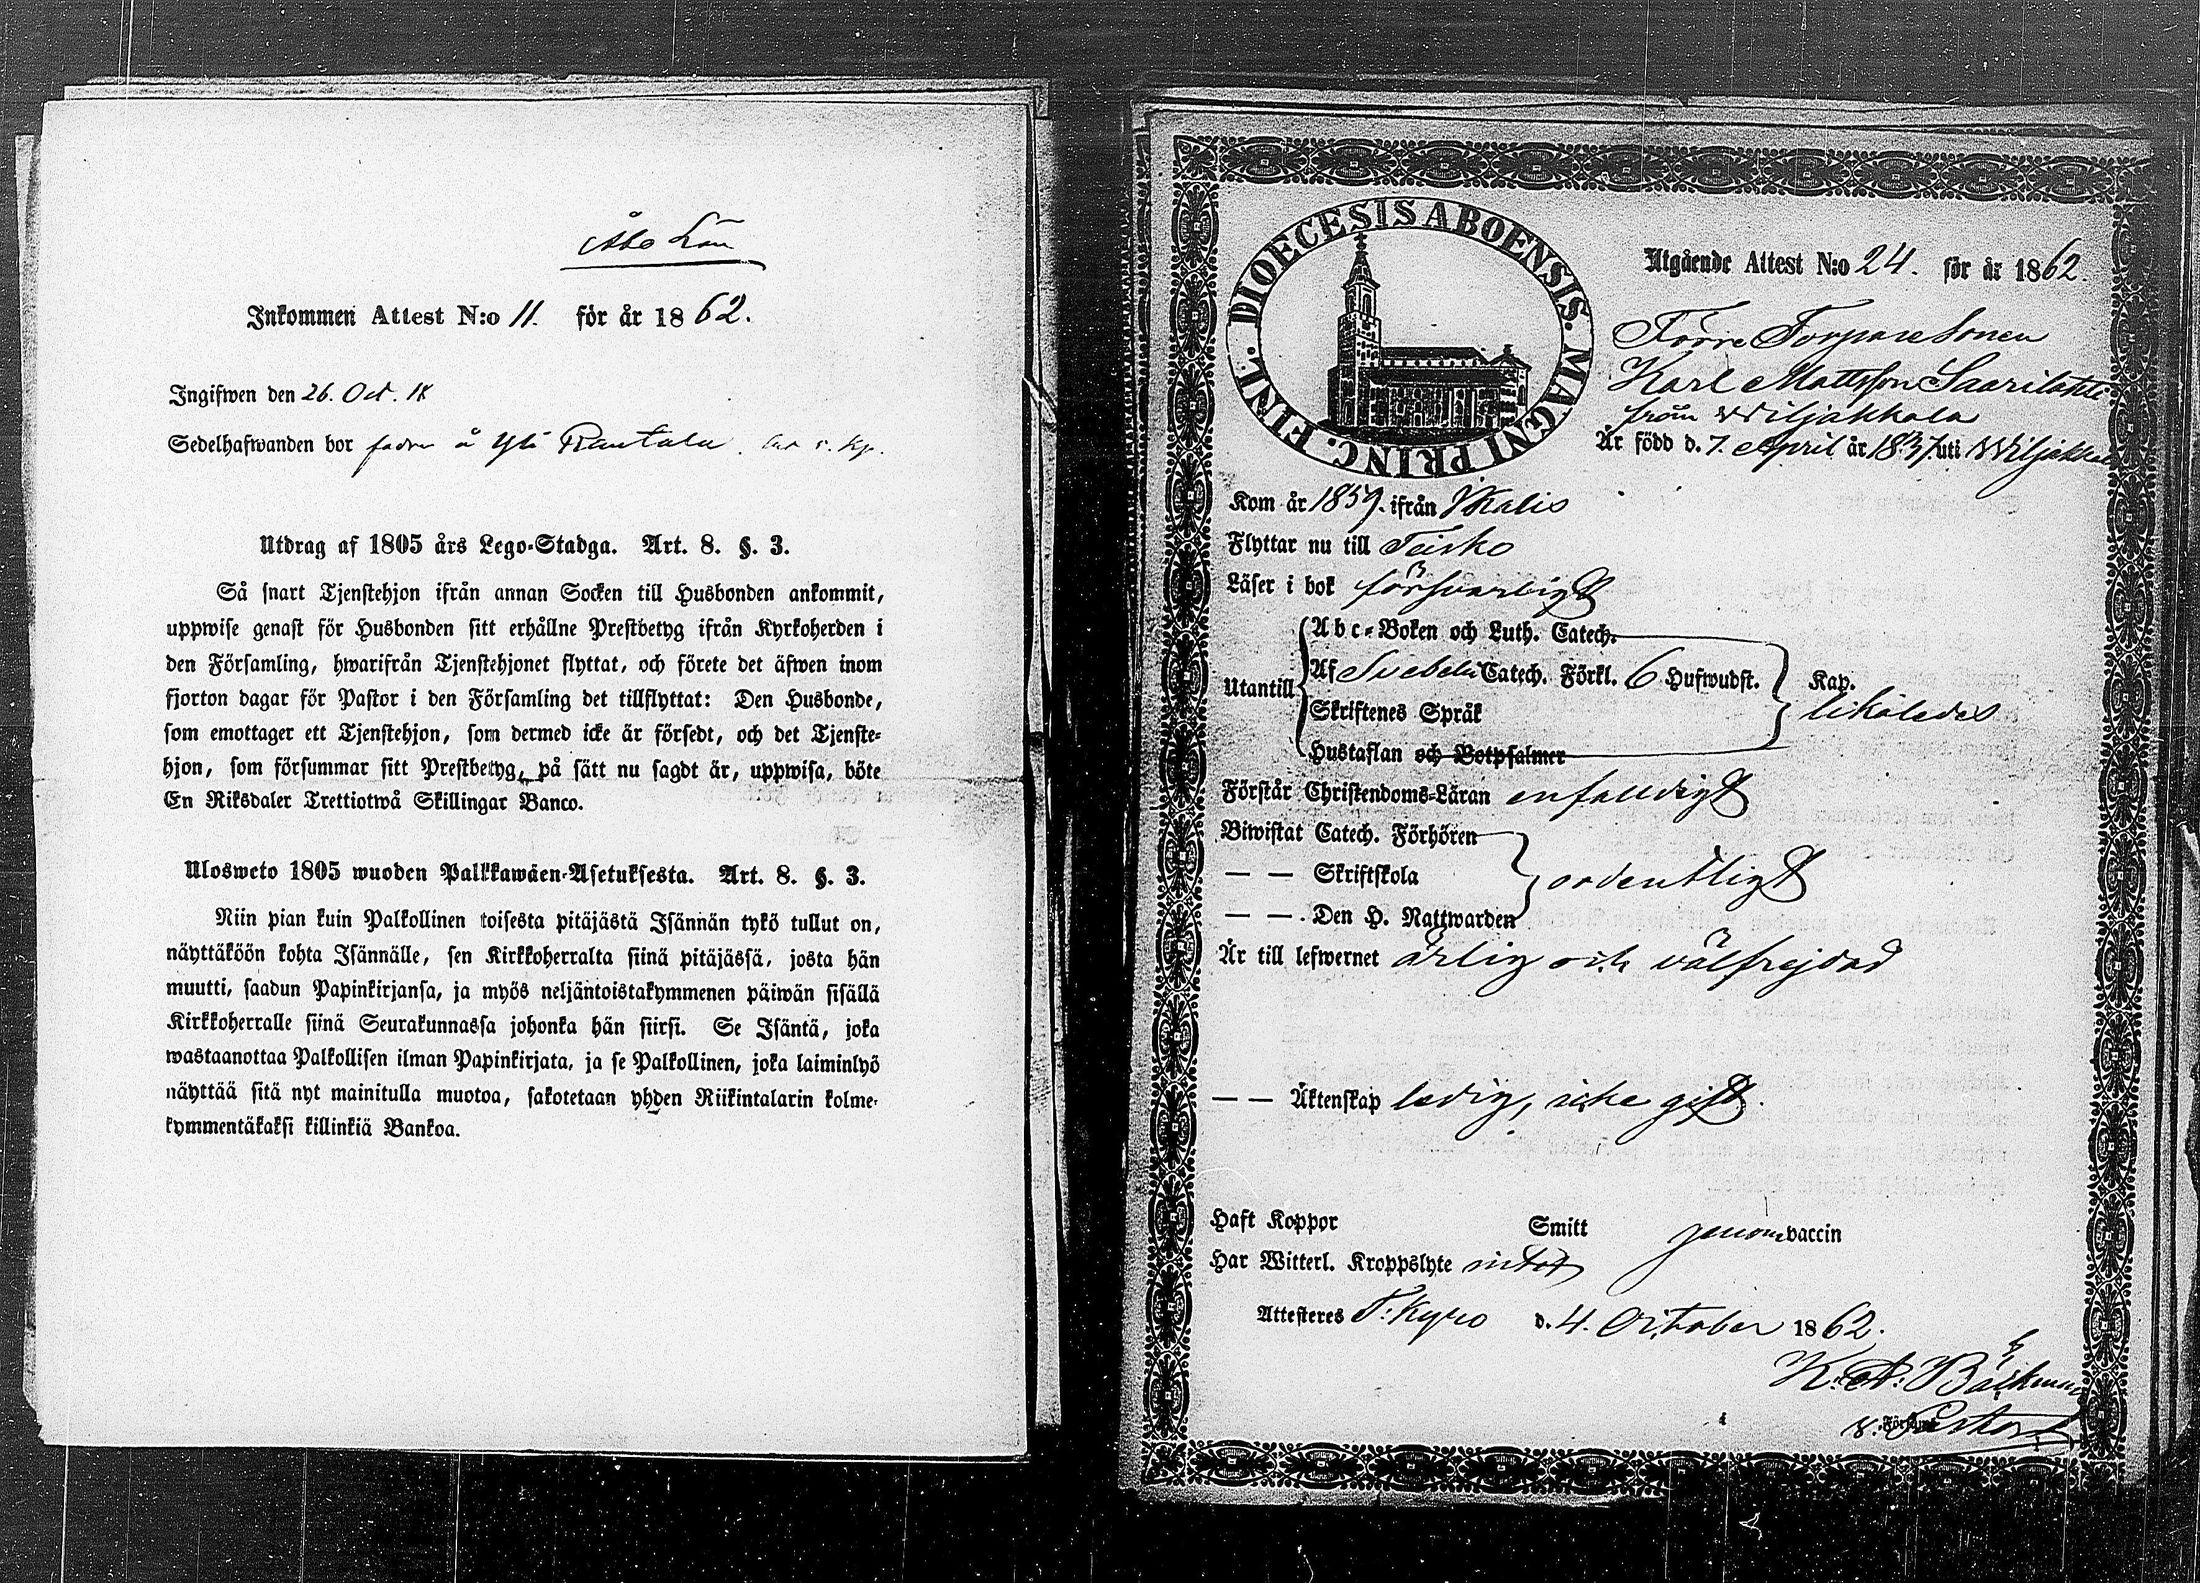 Åbo Län
Inkommen Attest N:o 11. för år 1862.
Ingifwen den 26. Oct.
Sedelhafwanden bor å Yli Rantala
Utdrag af 1805 års Lego-Stadga. Art. 8. §. 3.
Så snart Tjenstehjon ifrån annan Socken till Husbonden ankommit,
uppwise genast för Husbonden sitt erhållne Prestbetyg ifrån Kyrkoherden i
den Församling, hwarifrån Tjenstehjonet flyttat, och förete det äfwen inom
fjorton dagar för Pastor i den Församling det tillflyttat: Den Husbonde,
som emottager ett Tjenstehjon, som dermed icke är försedt, och det Tjenste-
hjon, som försummar sitt Prestbetyg, på sätt nu sagdt är, uppwisa, böte
En Riksdaler Trettiotwå Skillingar Banco.
Ulosweto 1805 wuoden Palkkawäen-Asetuksesta. Art. 8. §. 3.
Niin pian kuin Palkollinen toisesta pitäjästä Isännän tykö tullut on,
näyttäköön kohta Isännälle, sen Kirkkoherralta siinä pitäjässä, josta hän
muutti, saadun Papinkirjansa, ja myös neljäntoistakymmenen päiwän sisällä
Kirkkoherralle siinä Seurakunnassa johonka hän siirsi. Se Isäntä, joka
wastaanottaa Palkollisen ilman Papinkirjata, ja se Palkollinen, joka laiminlyö
näyttää sitä nyt mainitulla muotoa, sakotetaan yhden Riikintalarin kolme-
kymmentäkaksi killinkiä Bankoa.
FINL. DIOECESIS ABOENSIS. MAGNI PRINC.
Utgående Attest N:o 24. för år 1862.
Förre Torparesonen
Karl Mattsson Saarilakki
från Wiljakkala
Är född d. 7. April år 1837. uti Wiljakkala
Kom år 1859. ifrån Ikalis
Flyttar nu till Teisko
Läser i bok försvarligt
Utantill
Abc-Boken och Luth. Catech.
Af Svebelii Catech. Förkl. 6 Hufwudst. Kap.
Skriftenes Språk likaledes
Hustaflan och Botpsalmer
Förstår Christendoms-Läran enfalldigt
Biwistat Catech. Förhören
— — Skriftskola ordentligt
— — Den H. Nattwarden
Är till lefwernet ärlig och välfrejdad
— — Äktenskap ledig, icke gift.
Haft Koppor Smitt genom vaccin
Har Witterl. Kroppslyte intet
Attesteres T. Kyro d. 4. October 1862.
K. A. Bäckman
v. Pastor